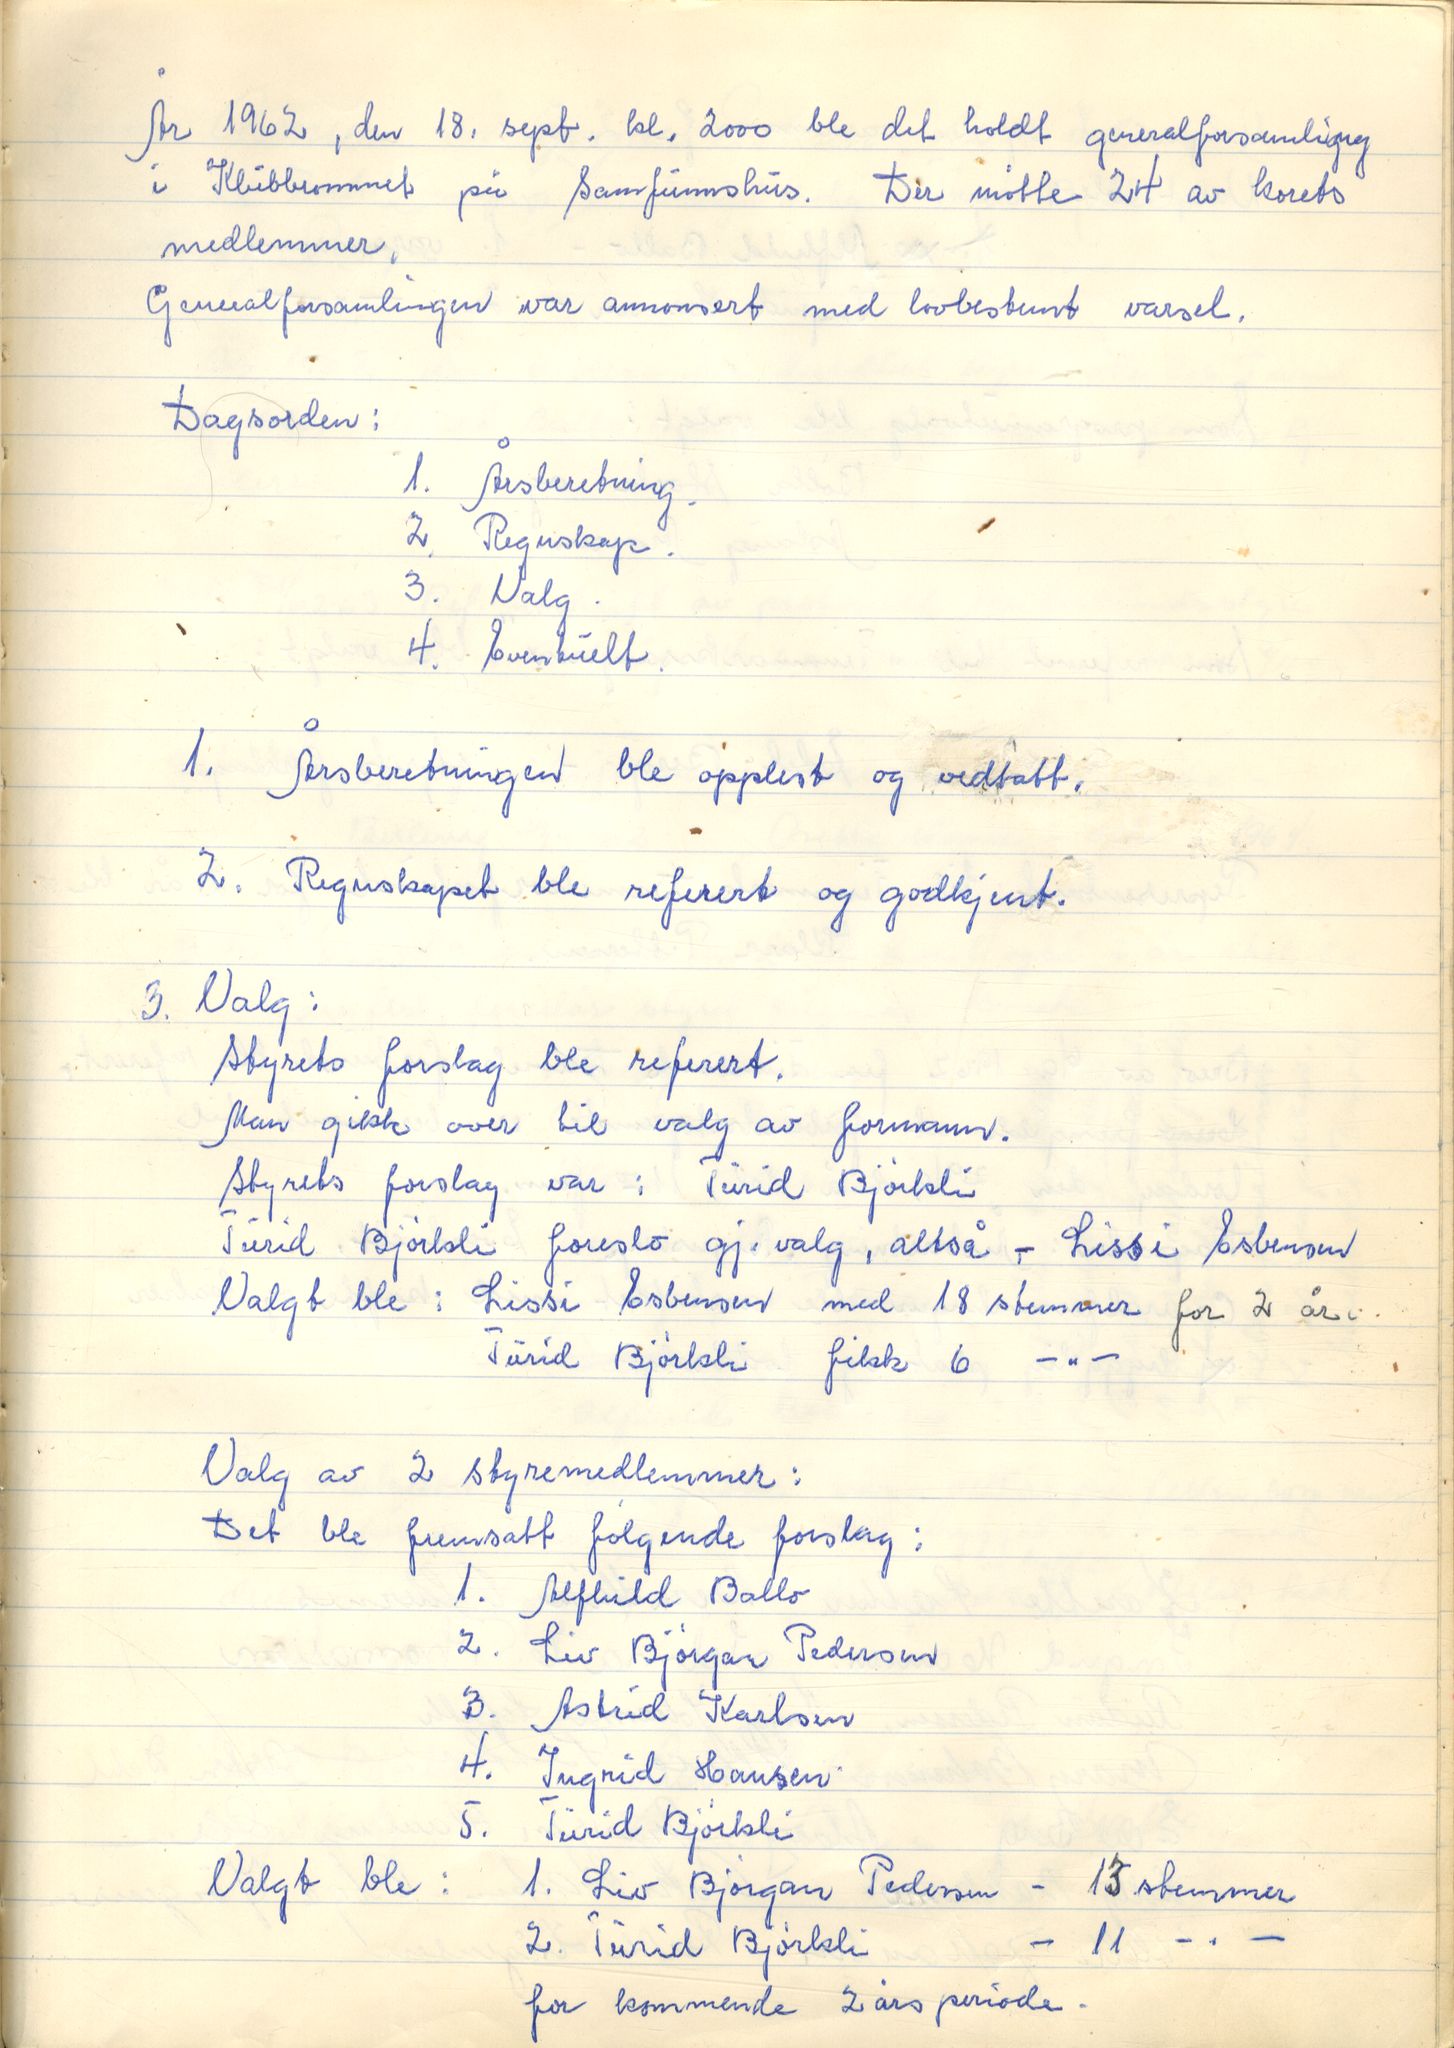 År 1962, den 18. sept. kl. 2000 ble det holdt generalforsamling
i Klubbrommet på Samfunnshus. Der møtte 24 av korets
medlemmer.
Generalforsamlingen var annonsert med lovbestemt varsel.
Dagsorden:
1. Årsberetning.
2. Regnskap.
3. Valg.
4. Eventuelt.
1. Årsberetningen ble opplest og vedtatt.
2. Regnskapet ble referert og godkjent.
3. Valg:
Styrets forslag ble referert.
Man gikk over til valg av formann.
Styrets forslag var: Turid Bjørkli
Turid Bjørkli foreslo gj. valg, altså - Lissi Esbensen
Valgt ble: Lissi Esbensen med 18 stemmer for 2 år.
Turid Bjørkli fikk 6 -"-
Valg av 2 styremedlemmer:
Det ble fremsatt følgende forslag:
1. Alfhild Ballo
2. Liv Bjørgan Pedersen
3. Astrid Karlsen
4. Ingrid Hansen
5. Turid Bjørkli
Valgt ble: 1. Liv Bjørgan Pedersen - stemmer
2. Turid Bjørkli - 11 -"-
for kommende 2 årsperiode.